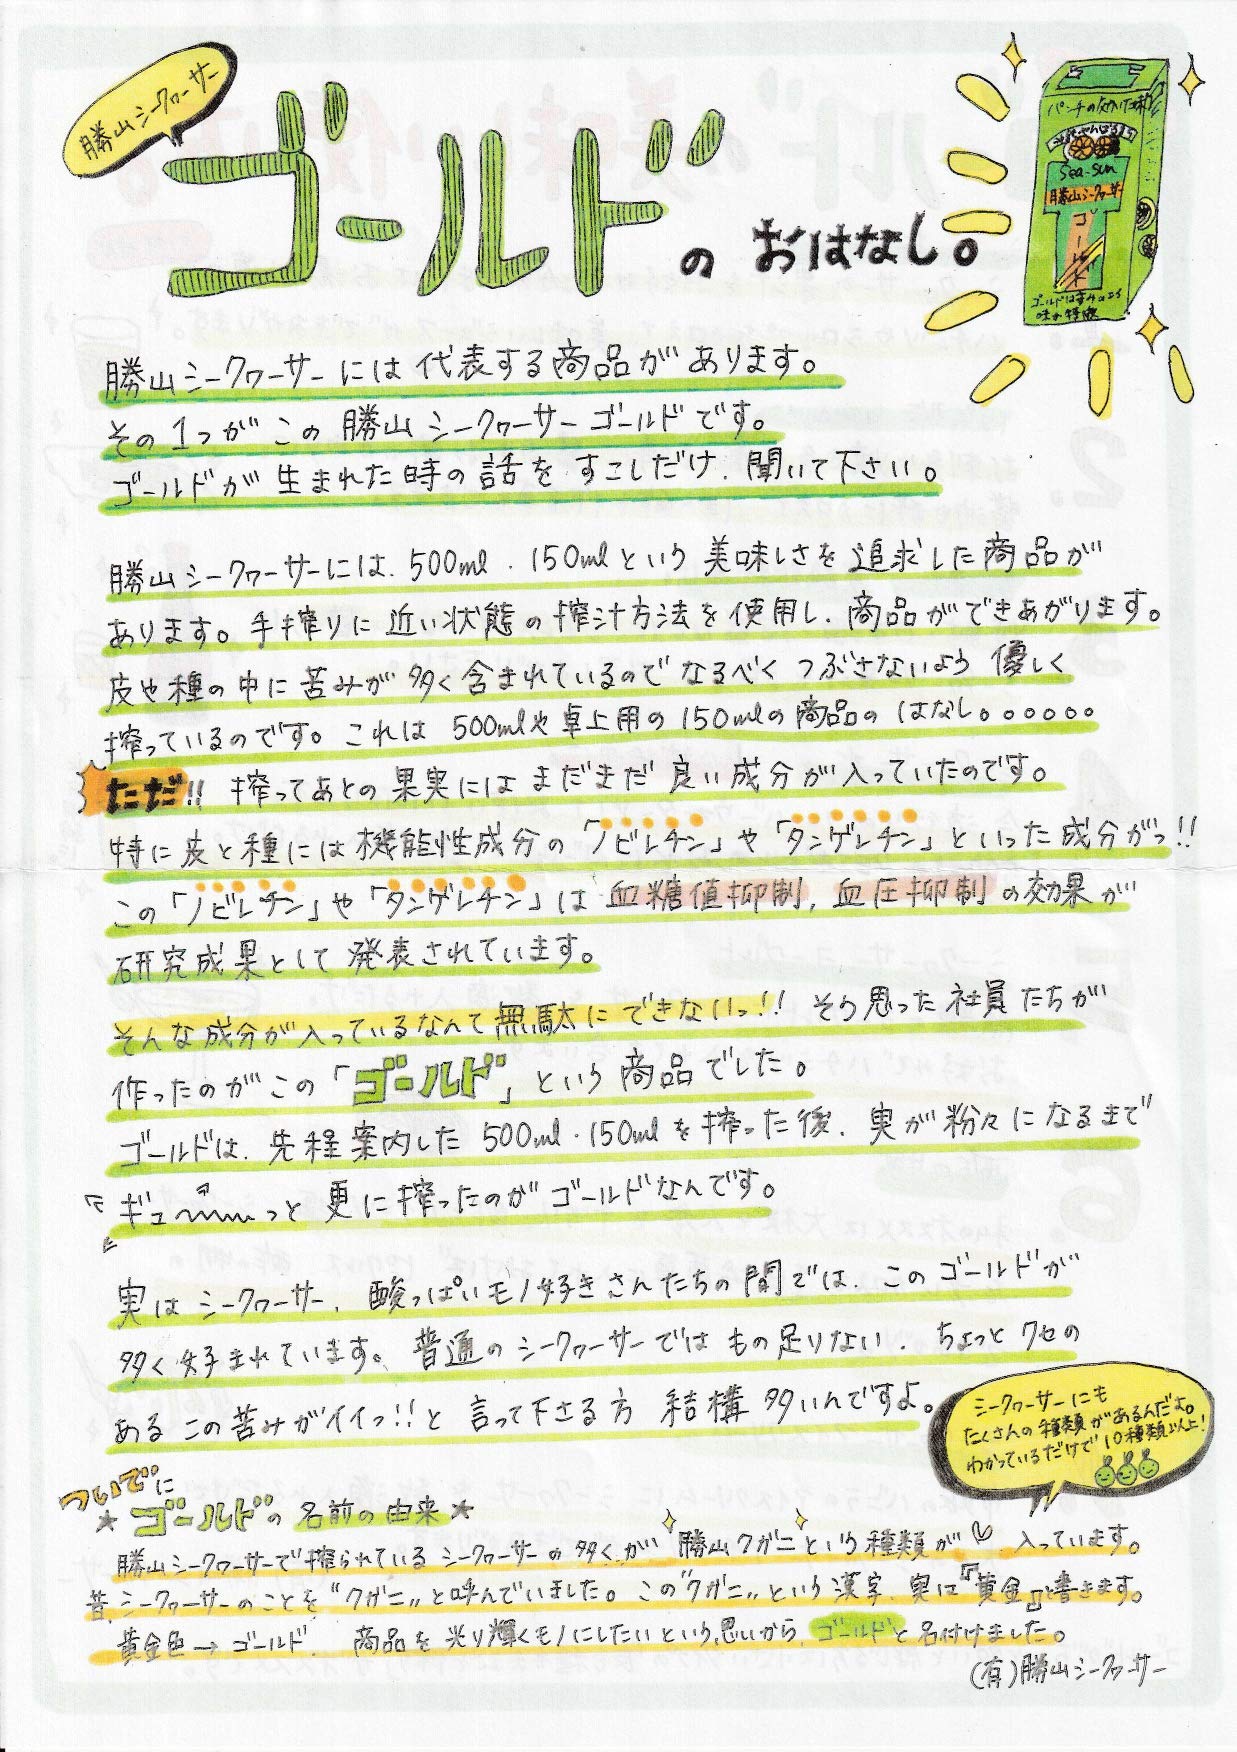 勝山シークヮーサー
ゴールドの おはなし。
パンチの効いた味
Sea-Sun
勝山シークヮーサー
ゴールド
勝山シークヮーサーには代表する商品があります。
その1つがこの 勝山シークヮーサーゴールドです。
ゴールドが生まれた時の話を すこしだけ、聞いて下さい。
勝山シークヮーサーには、500ml・150mlという美味しさを追求した商品が
あります。手搾りに近い状態の搾汁方法を使用し、商品ができあがります。
皮や種の中に苦みが多く含まれているのでなるべく つぶさないよう 優しく
搾っているのです。これは 500mlや卓上用の150mlの商品のはなし。。。。。。
ただ!! 搾ってあとの果実にはまだまだ良い成分が入っていたのです。
特に皮と種には機能性成分の「ノビレチン」や「タンゲレチン」といった成分がっ!!
この「ノビレチン」や「タンゲレチン」は血糖値抑制,血圧抑制の効果が
研究成果として発表されています。
そんな成分が入っているなんて無駄にできないっ!! そう思った社員たちが
作ったのがこの「ゴールド」という商品でした。
ゴールドは、先程案内した500ml・150mlを搾った後、実が粉々になるまで
ギュ〜〜っと更に搾ったのがゴールドなんです。
実はシークヮーサー、酸っぱいモノ好きさんたちの間では、このゴールドが
多く好まれています。普通のシークヮーサーではもの足りない、ちょっとクセの
あるこの苦みがイイっ!!と言って下さる方 結構 多いんですよ。
シークヮーサーにも
たくさんの種類があるんだよ。
わかっているだけで10種類以上!
ついでに
★ゴールドの名前の由来★
勝山シークヮーサーで搾られているシークヮーサーの多くが 勝山クガニという種類が 入っています。
昔、シークヮーサーのことを"クガニ"と呼んでいました。この"クガニ"という漢字、実は『黄金』と書きます。
黄金色→ゴールド、商品を光り輝くモノにしたいという思いから、ゴールドと名付けました。
(有)勝山シークヮーサー